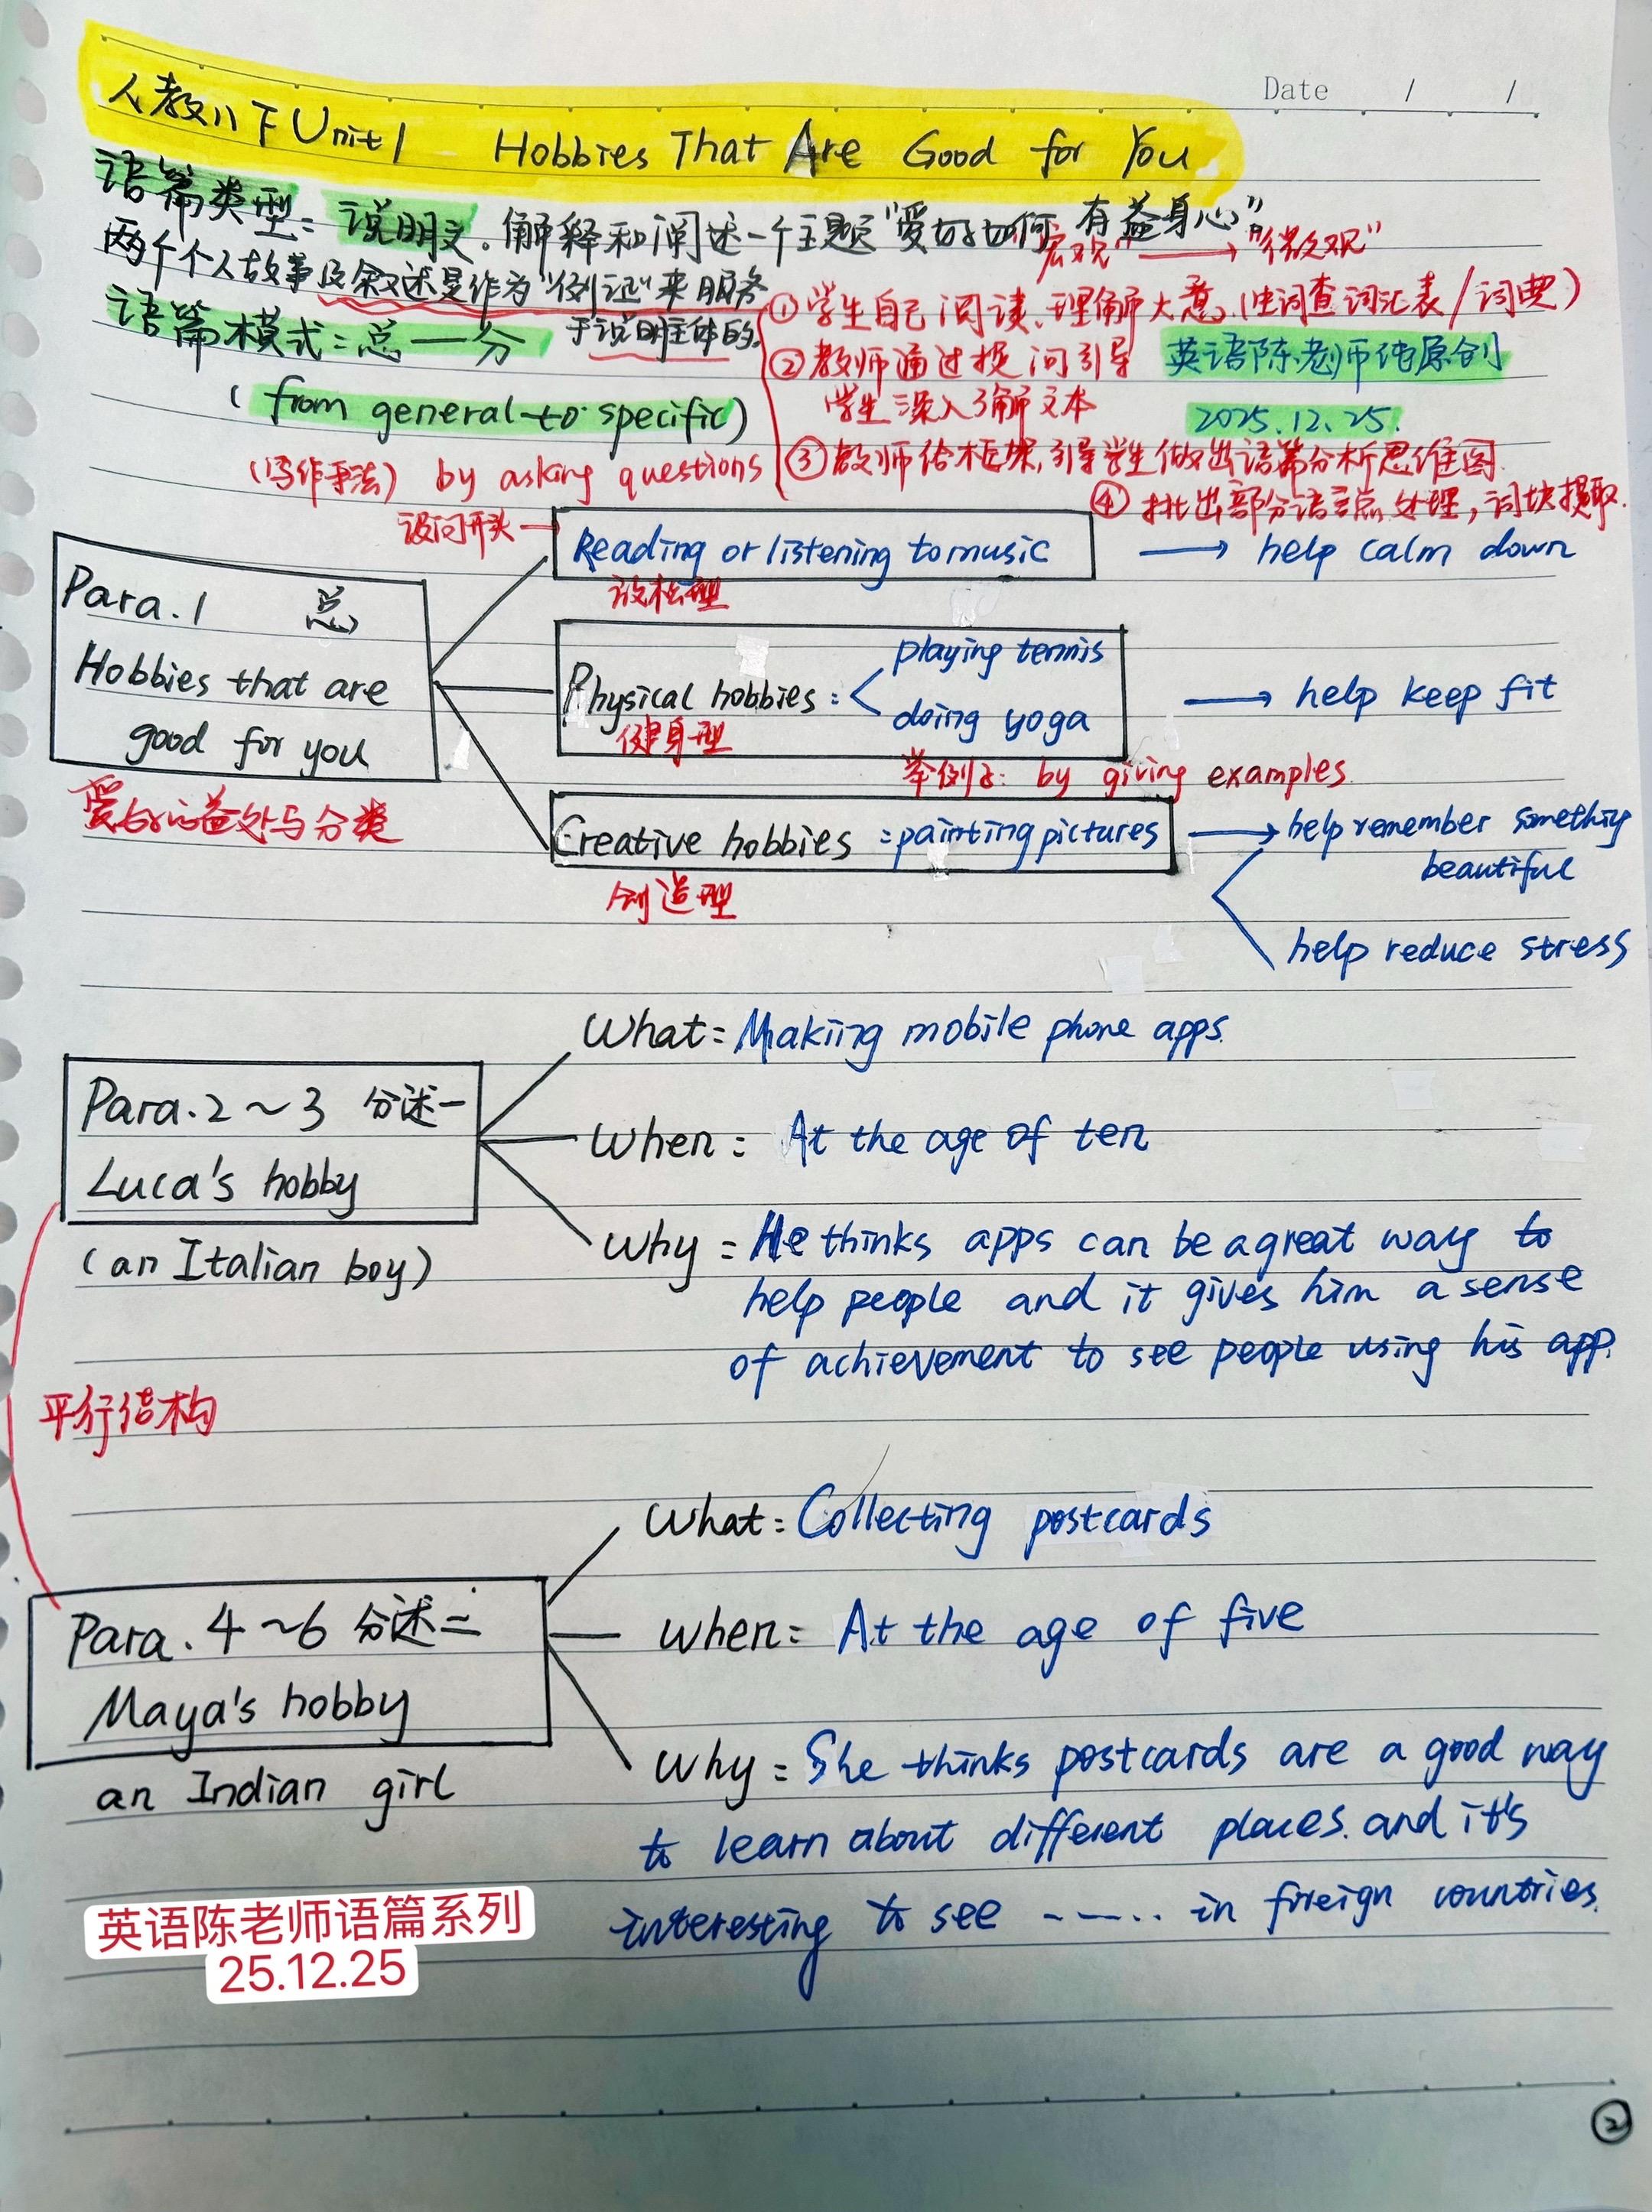 Date / /
人教八下Unit1 Hobbies That Are Good for You
语篇类型：说明文。解释和阐述一个主题"爱好如何有益身心"。
两个个人故事及叙述是作为"例证"来服务
于说明主体的。
"宏观"→"微观"
语篇模式：总—分
(from general to specific)
①学生自己阅读、理解大意。(生词查词汇表/词典)
②教师通过提问引导
学生深入了解文本
英语陈老师纯原创
2025.12.25.
③教师给框架,引导学生做出语篇分析思维图
④挑出部分语言点处理,词块提取.
(写作手法) by asking questions
设问开头
Para.1 总
Hobbies that are
good for you
爱好的益处与分类
Reading or listening to music → help calm down
放松型
Physical hobbies: playing tennis
doing yoga
→ help keep fit
健身型
举例子: by giving examples.
Creative hobbies: painting pictures → help remember something
beautiful
help reduce stress
创造型
Para.2~3 分述一
Luca's hobby
(an Italian boy)
What: Making mobile phone apps.
When: At the age of ten
Why: He thinks apps can be a great way to
help people and it gives him a sense
of achievement to see people using his app.
平行结构
Para.4~6 分述二
Maya's hobby
an Indian girl
What: Collecting postcards
When: At the age of five
Why: She thinks postcards are a good way
to learn about different places. and it's
interesting to see ------ in foreign countries.
英语陈老师语篇系列
25.12.25
②